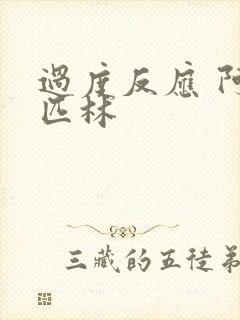 過度反應 阿
匹林
三藏的五徒弟